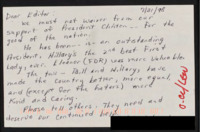 Dear Editor 7/21/98
We must not waver from our
support of President Clinton for the
good of the nation.
He has been is an outstanding
President. Hillary's the 2nd best First
Lady ever. Eleanor (FDR) was more vulnerable
This two - Bill and Hillary, have
made the country better, more equal
and (except for the haters) more
Kind and Caring.
Please tell others. They need and
deserve our continued help.